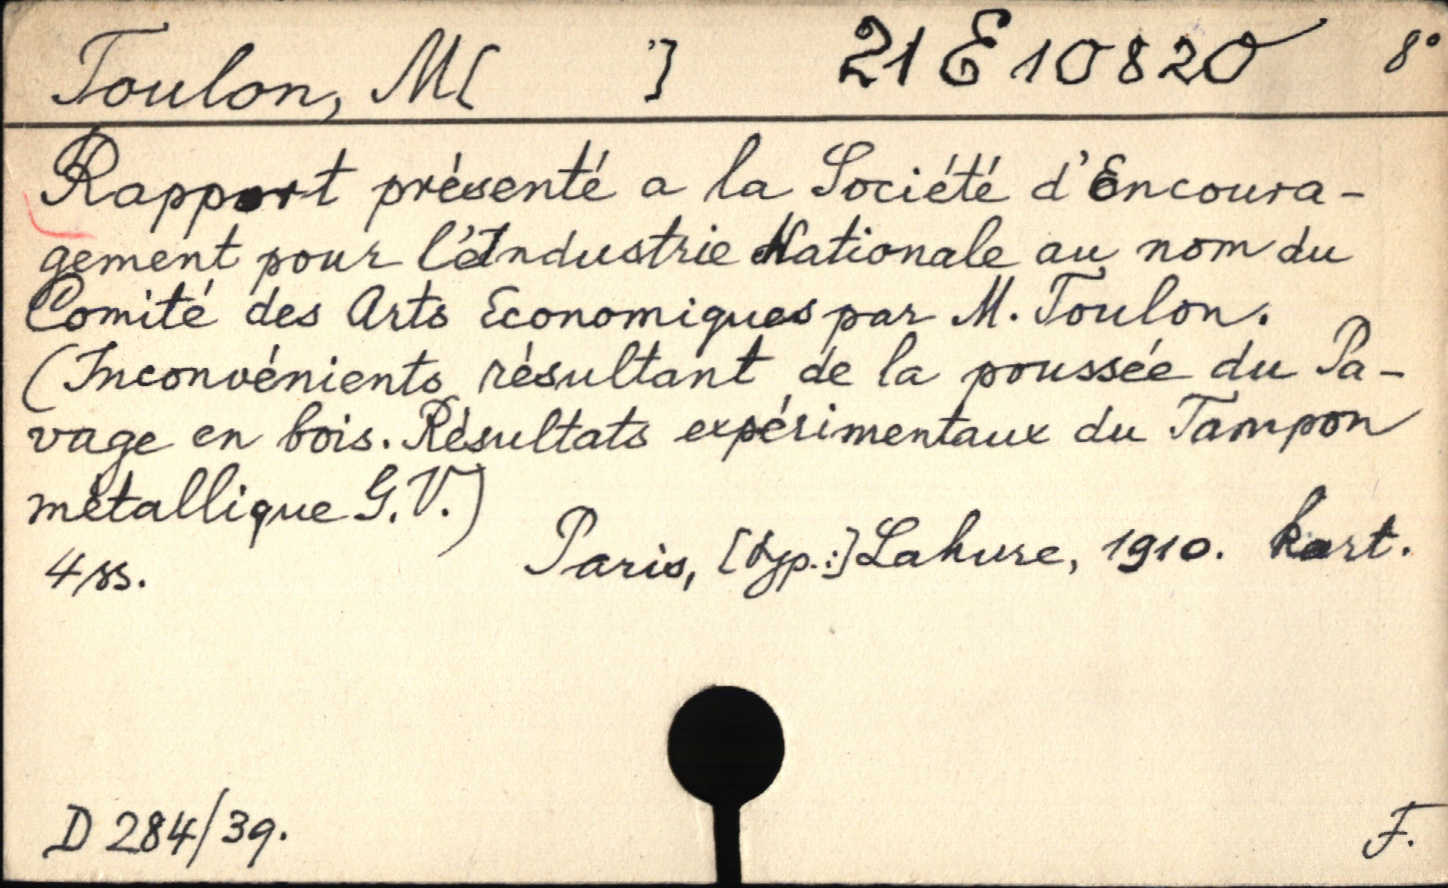 Toulon, M[ ] 21 E 10820 8°
Rapport présenté a la Société d'Encoura-
gement pour l'Industrie Nationale au nom du
Comité des Arts Economiques par M. Toulon.
(Inconvénients résultant de la poussée du Pa-
vage en bois. Résultats expérimentaux du Tampon
métallique G.V.)
4 ss. Paris, [typ.:] Lahure, 1910. kart.
D 284/39. F.